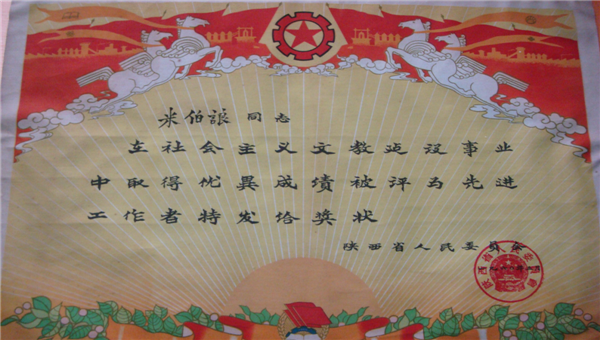 米伯讓 同志
在社会主义文教建设事业
中取得优異成绩被评为先进
工作者特发给奖状
陕西省人民委员会